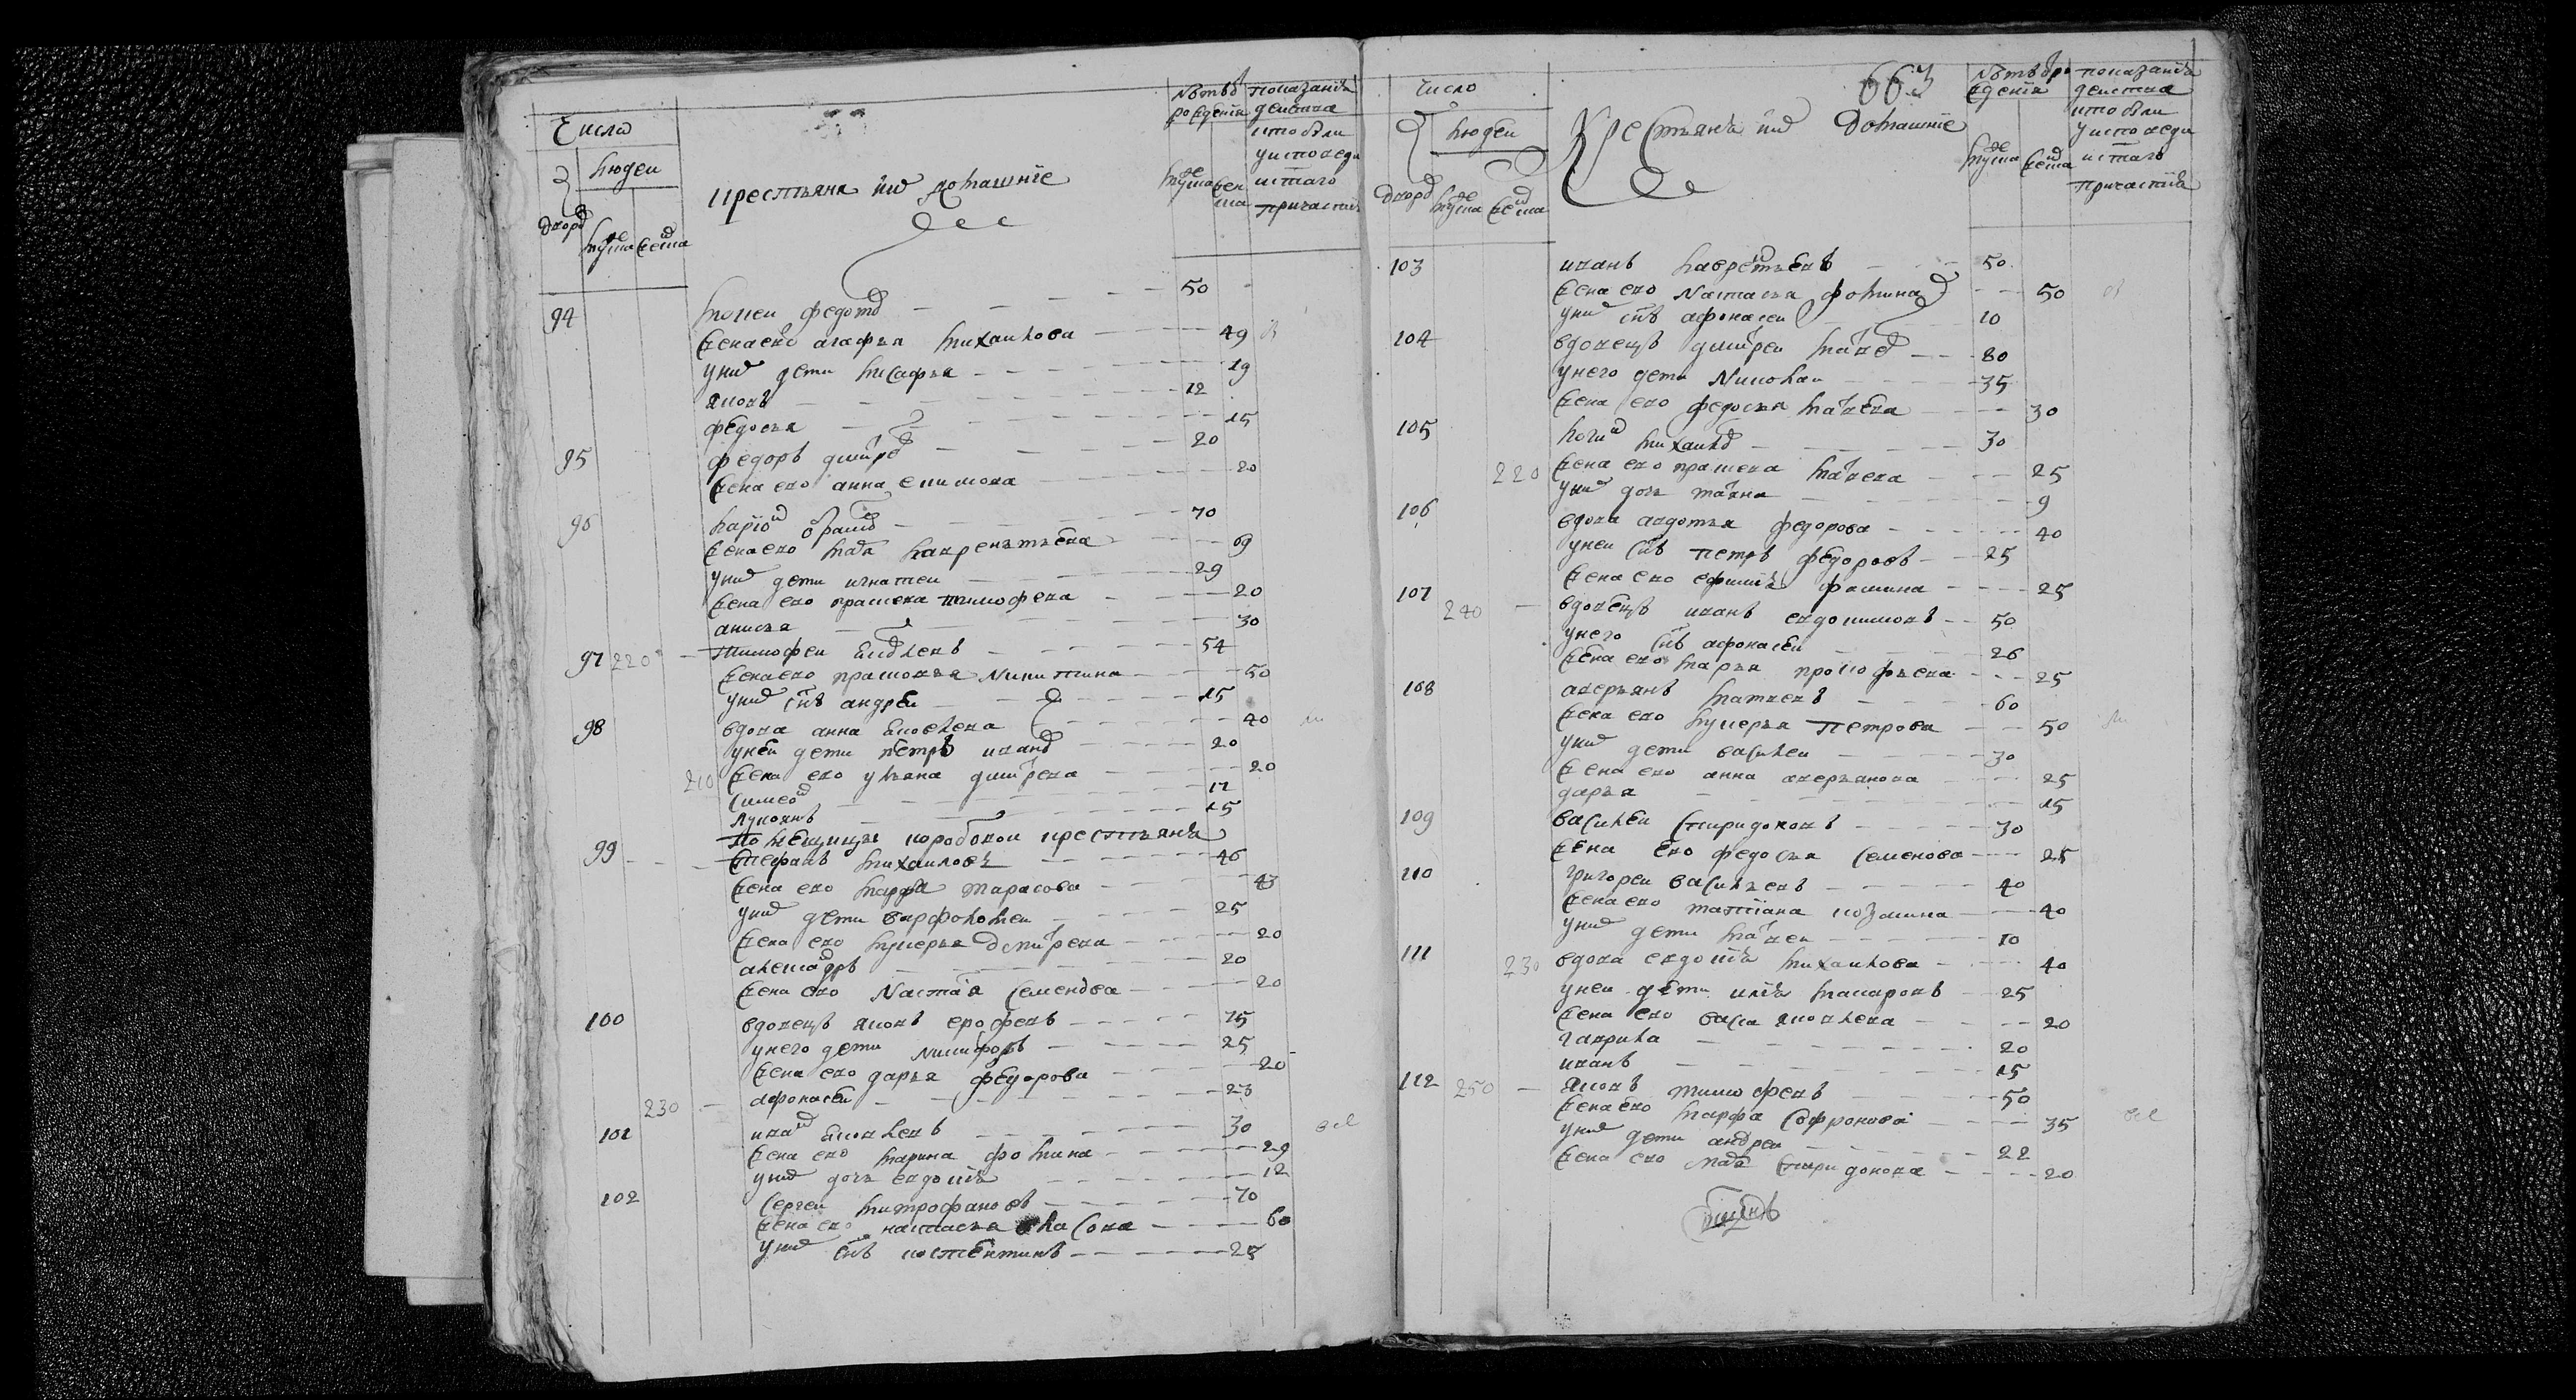 Число
людеи
дворо
мужеска
женска
крестьяня ихъ домашние
летъ от рождения
мужеска
женска
показание действа кто был у исповеди и с[вя]таго причастия
94
федот
50
жена ево агафья михаилова 49
у них дети
19
яковъ 12
федосья 15
95 федоръ дмитре 20
жена ево анна екимова 20
96 ларион 70
жена ево лаврентьева 69
у них дети игнатеи 29
жена ево прасковя тимофева 20
анисья 30
97 220 тимофеи яковлевъ 54
жена ево прасковья никитина 50
у них снъ андреи 15
98 вдова анна яковлева 40
у неи дети петръ иванъ 20
210 жена ево ульяна дмитрева 20
симеон 17
лукоянъ 15
помещицы коробовои крестьяня
99 стефанъ михаиловъ 46
жена ево марфа тарасова 43
у них дети варфоломеи 25
жена ево лукерья дмитрева 20
алексадръ 20
жена ево настася семенова 20
100 вдовецъ яковъ ерофевъ 75
у него дети никифоръ 25
жена ево дарья федорова 20
230 афонасеи 23
101 иван яковлевъ 30
жена ево марина фомина 29
у них дочь евдокия 12
102 сергеи митрофановъ 70
жена ево настасья власова 60
у них снъ костентинъ 25
Число
людеи
дворо
мужеска
женска
663
Крестьяня ихъ Домашние
летъ от рождения
мужеска
женска
показание действа кто был у исповеди и с[вя]таго причастия
103 иванъ лаврентьевъ 50
жена ево настасья фомина 50
у них снъ афонасеи 10
104 вдовецъ дмитреи матвеев 80
у него дети николаи 35
жена ево федосья матвева 30
105 логин михаило 30
220 жена ево прасковя матвева 25
у них дочь татяна 9
106 вдова авдотья федорова 40
у неи снъ петръ федоровъ 25
жена ево ефимия фомина 25
107 240 вдовецъ иванъ евдокимовъ 50
у него снъ афонасеи 26
жена ево марья прокофьева 25
108 аверьянъ матвевъ 60
жена ево лукерья петрова 50
у них дети василеи 30
жена ево анна аверьянова 25
дарья 15
109 василеи спиридоновъ 30
жена ево федосья семенова 25
110 григореи васильевъ 40
жена ево татияна козмина 40
у них дети матвеи 10
111 230 вдова евдокия михаилова 40
у неи дети илия макаровъ 25
жена ево васса яковлева 20
гаврила 20
иванъ 15
112 250 яковъ тимофевъ 50
жена ево марфа софронова 35
у них дети андреи 22
жена ево спиридонова 20